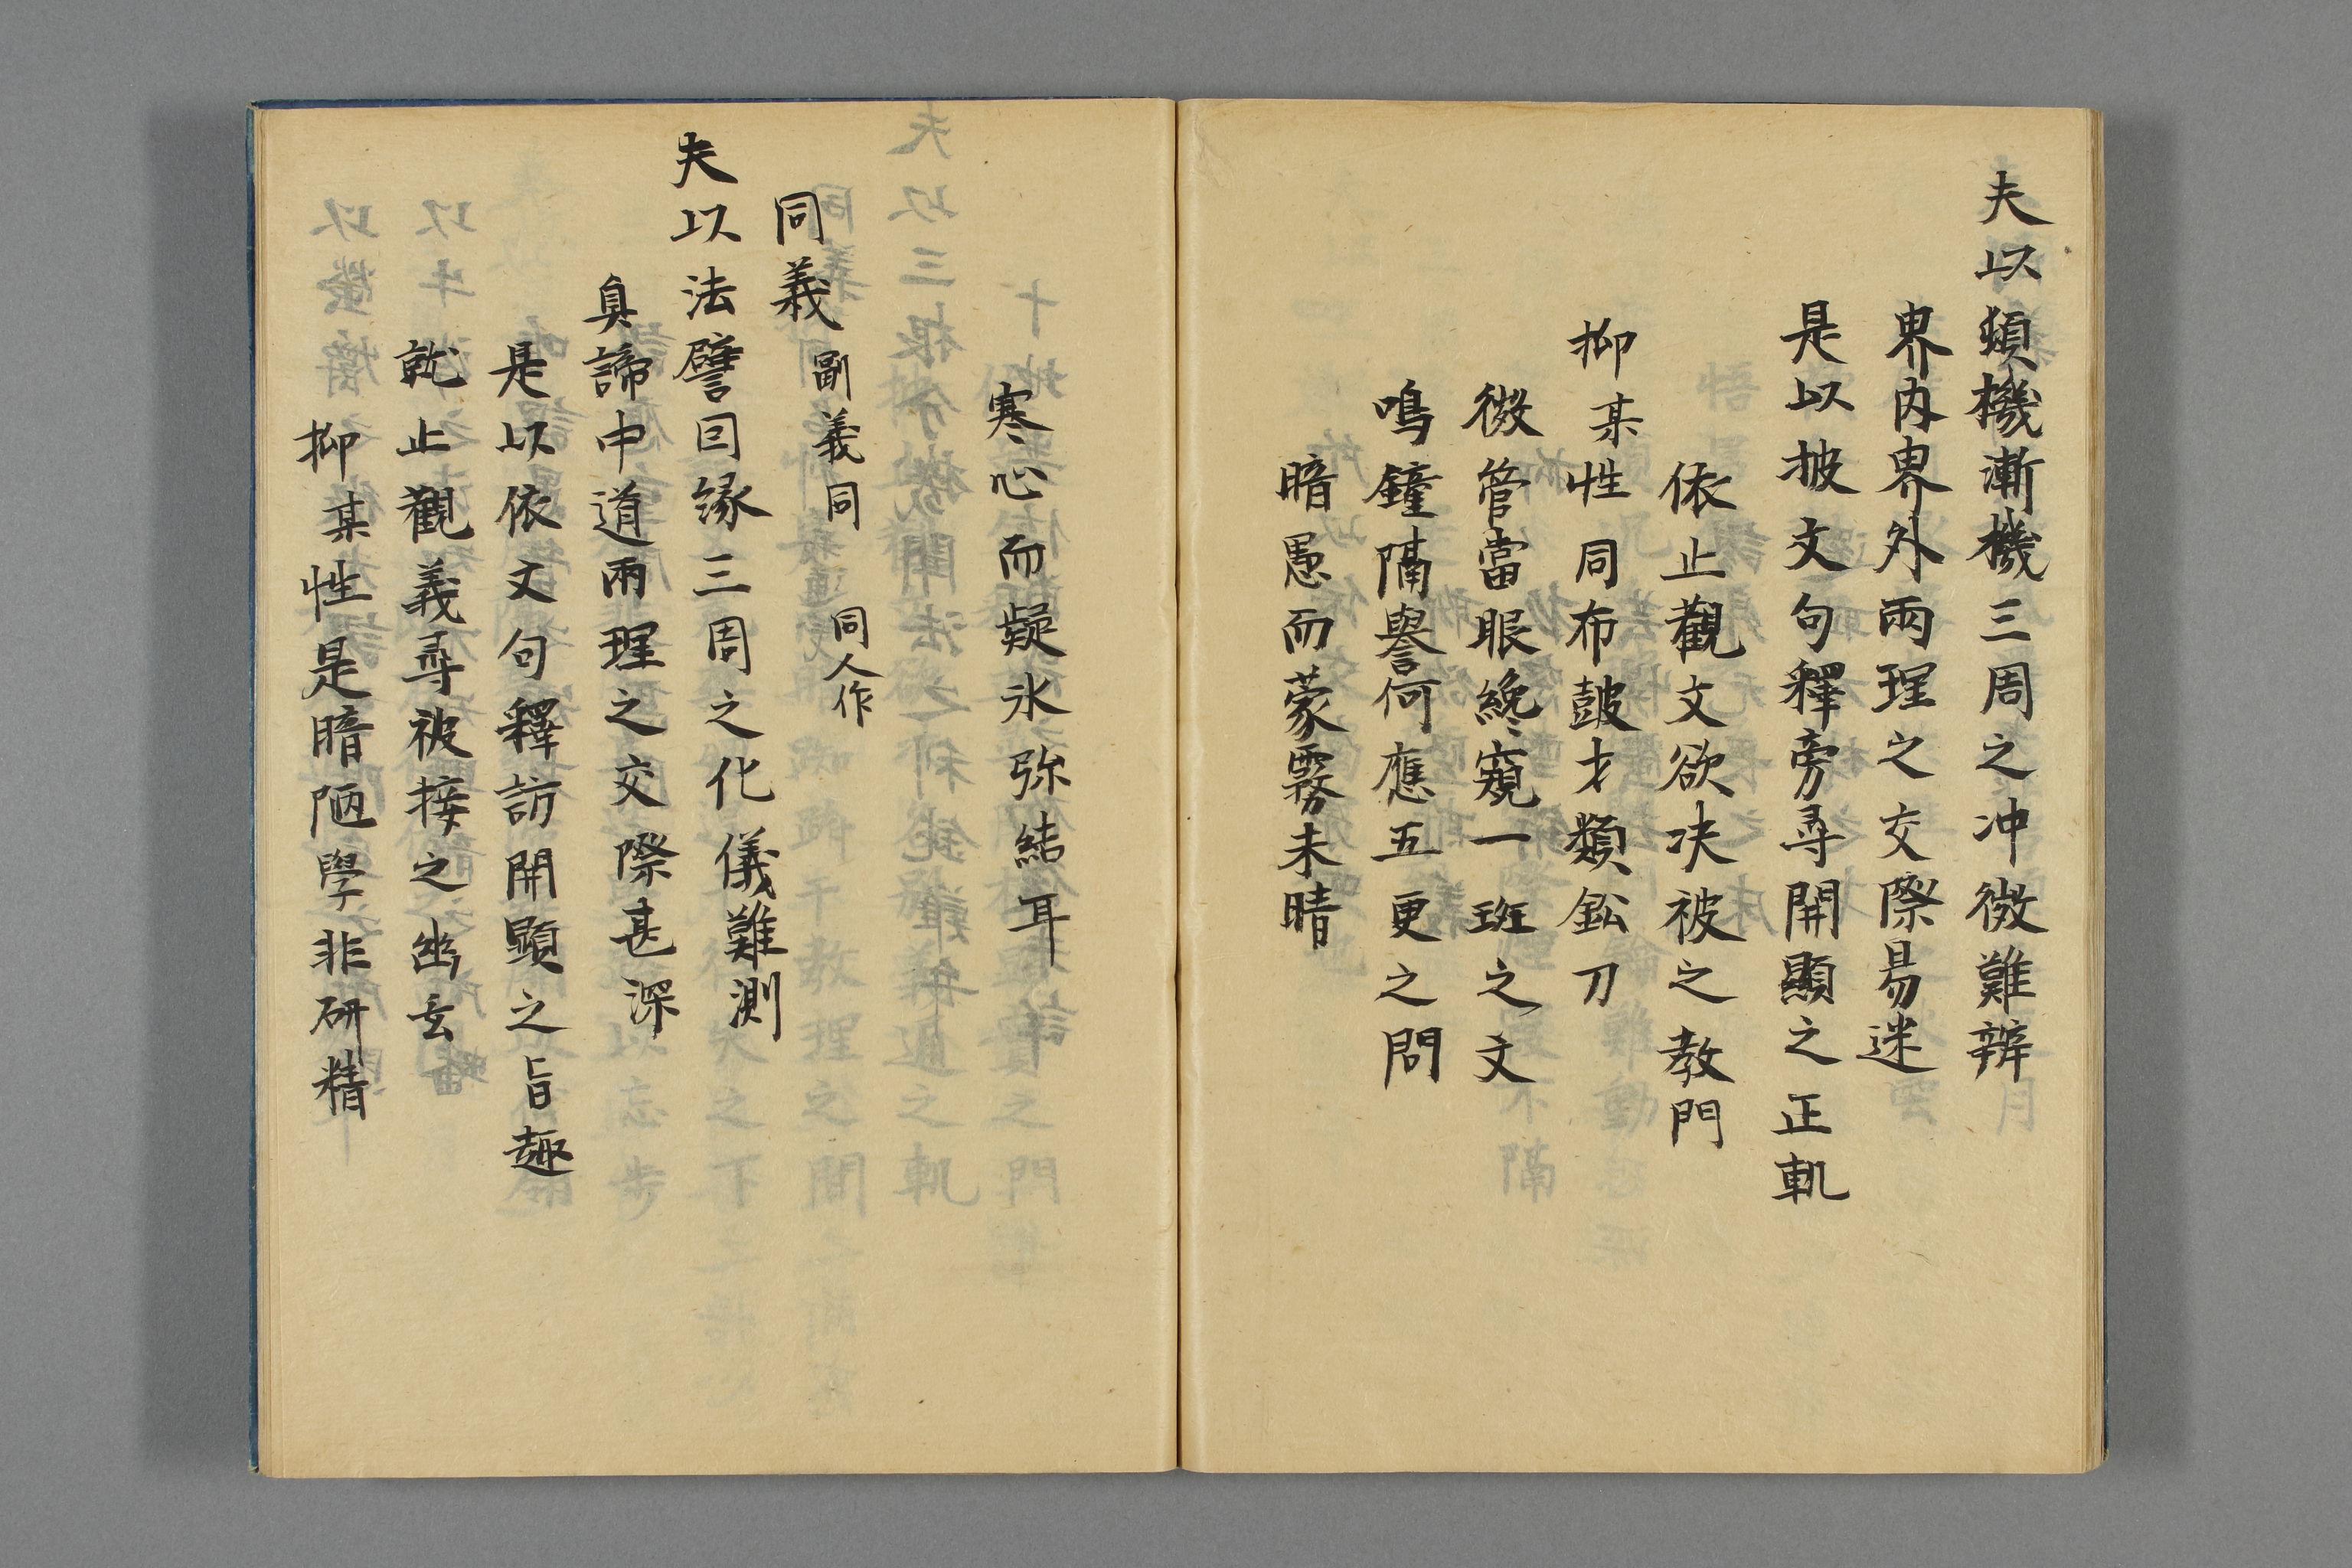 夫以頓機漸機三周之冲微難辨
界内界外兩理之交際易迷
是以披文句釋旁尋開顯之正軌
依止觀文欲决被之教門
抑某性同布皷才類鈆刀
微管當眼纔窺一斑之文
鳴鐘隔譽何應五更之問
暗愚而蒙霧未晴
寒心而疑氷弥結耳
同義 副義同 同人作
夫以法譬因縁三周之化儀難測
真諦中道兩理之交際甚深
是以依文句釋訪開顯之旨趣
就止觀義尋被接之幽玄
抑某性是暗陋學非研精